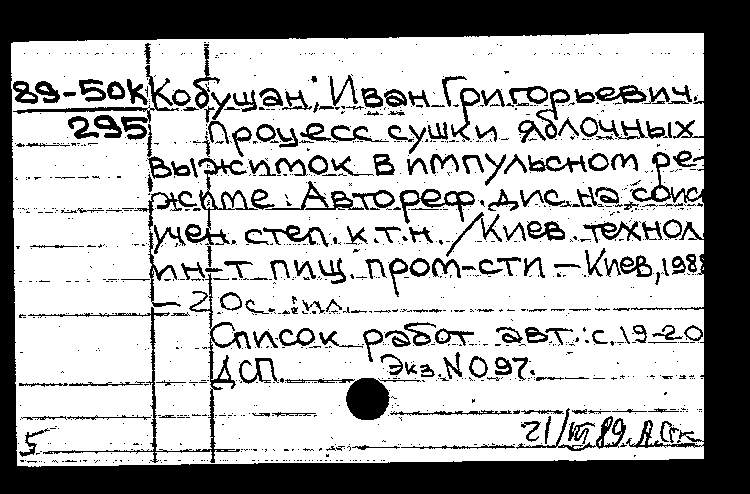 89-50К Кобушан, Иван Григорьевич.
295 Процесс сушки яблочных
выжимок в импульсном ре-
жиме : Автореф. дис. на соис
учен. степ. к.т.н. / Киев. технол.
ин-т пищ. пром-сти – Киев, 1988
– 20с. : ил.
Список работ авт.: с. 19-20
ДСП. Экз. N 097.
21/VII 89.
5